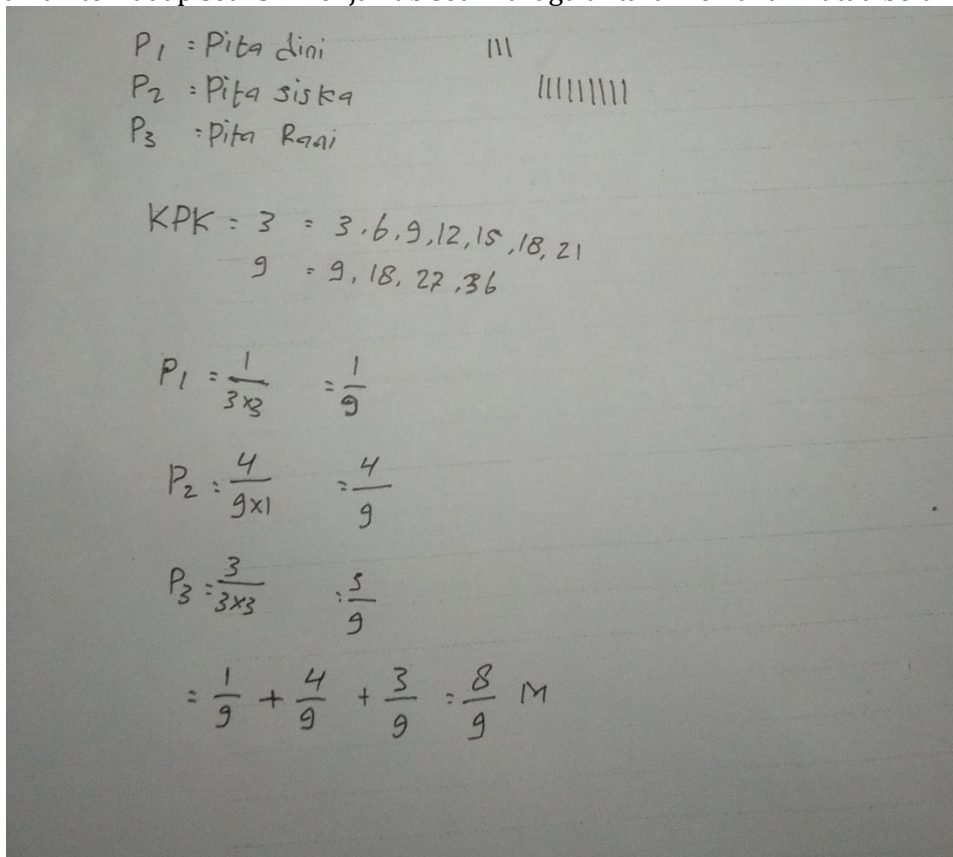 P1 = Pita dini |||
P2 = Pita siska ||||||||||
P3 = Pita Rani
KPK = 3 = 3, 6, 9, 12, 15, 18, 21
9 = 9, 18, 27, 36
P1 = 1/3×3 = 1/9
P2 = 4/9×1 = 4/9
P3 = 3/3×3 = 3/9
= 1/9 + 4/9 + 3/9 = 8/9 M